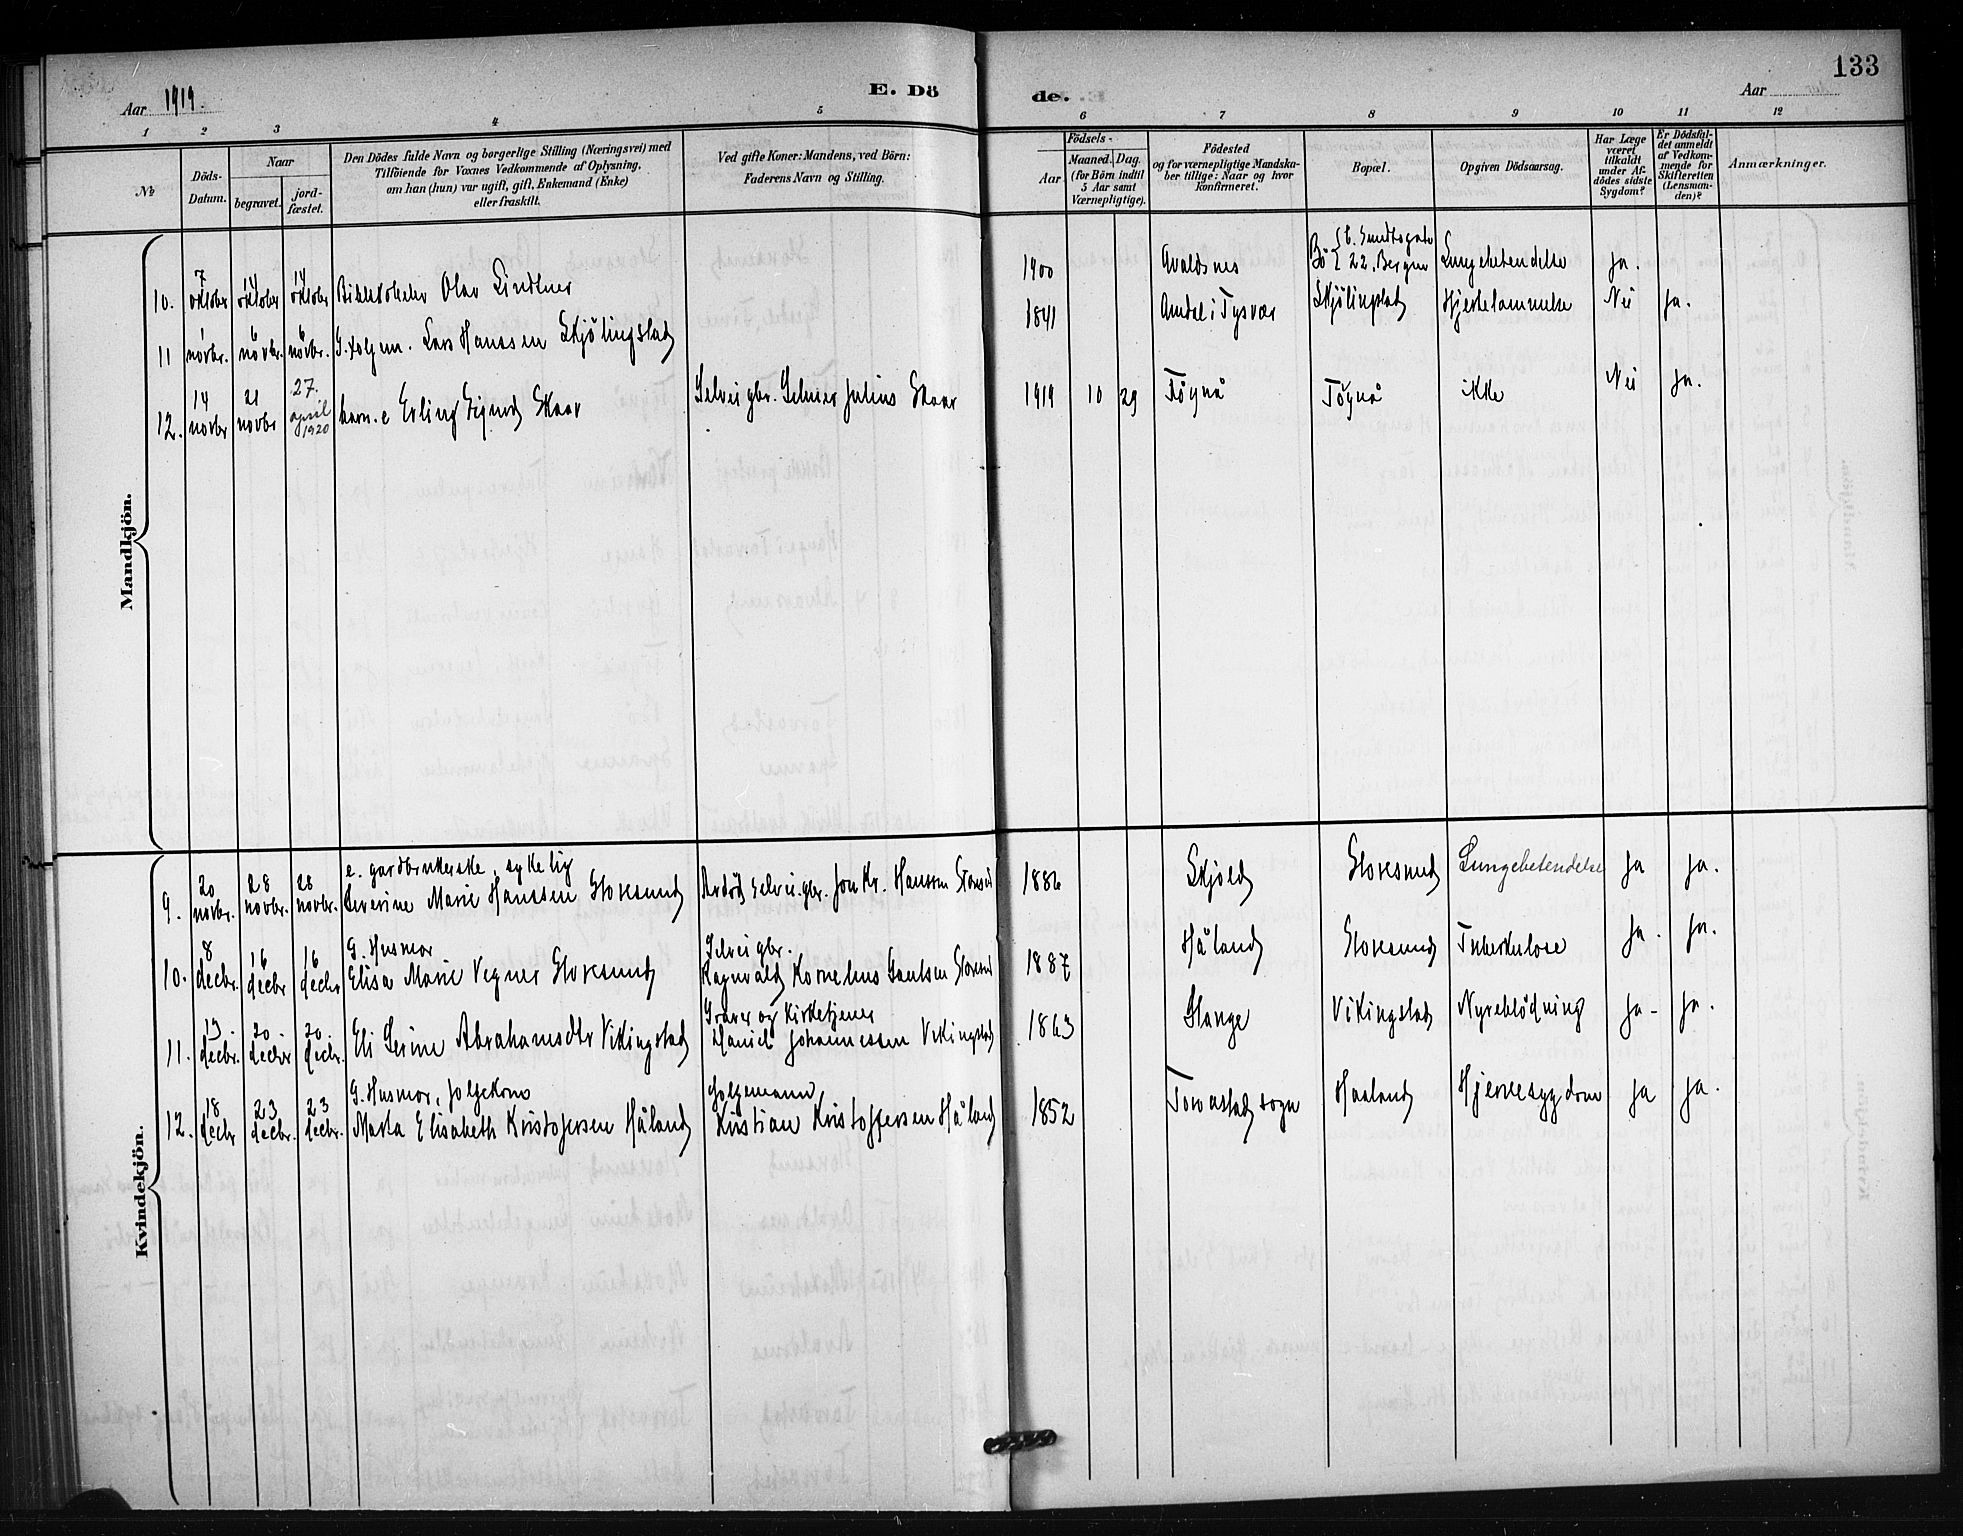 133
Aar 1919.
E. Dö
de.
Aar
1 2 3 4 5 6 7 8 9 10 11 12
№
Döds-Datum.
Naar
begravet.
jord-fæstet.
Den Dödes fulde Navn og borgerlige Stilling (Næringsvei) med
Tilföiende for Voxnes Vedkommende af Oplysning,
om han (hun) var ugift, gift, Enkemand (Enke)
eller fraskilt.
Ved gifte Koner: Mandens, ved Börn:
Faderens Navn og Stilling.
Födsels-
Aar
Maaned. Dag.
(for Börn indtil
5 Aar samt
Værnepligtige).
Födested
og for værnepligtige Mandska-
ber tillige: Naar og hvor
Konfirmeret.
Bopæl.
Opgiven Dödsaarsag.
Har Læge
været
tilkaldt
under Af-
dödes sidste
Sygdom?
Er Dödsfal-
det anmeldt
af Vedkom-
mende for
Skifteretten
(Lensman-
den)?
Anmærkninger.
Mandkjön.
10. 7 oktober 14 oktober 14 oktober Olav Lindtner 1900 Avaldsnes Bö 22, Bergen Lungebetendelse Ja.
11 1 novbr. 6 novbr. 6 novbr. G. Lars Hanssen Skjölingstad 1841 Amdal i Tysvær Skjölingstad Hjertelammelse Nei Ja.
12. 14 novbr 21 novbr 27. april 1920 Erling Sigurd Skaar Selveigbr. Selmer Julius Skaar 1919 10 29 Föynå Föynå ikke Nei Ja.
Kvindekjön.
e. gardbrukerske, sykelig
9. 20 novbr. 28 novbr. 28 novbr. Severine Marie Hanssen Storesund Selveigbr. Jon Kr. Hanssen Storesund 1886 Skjold Storesund Lungebetendelse Ja Ja.
G. Husmor
Selveigbr.
10. 8 decbr. 16 decbr 16 decbr Elisa Marie Vegner Storesund Ragnvald Kornelius Storesund 1887 Håland Storesund Tuberkulose Ja. Ja.
Graver og Kirketjener
11. 13. decbr. 20. decbr 20. decbr. Eli Serine Abrahamsdtr Vikingstad Daniel Johannessen Vikingstad 1863 Stange Vikingstad Nyreblödning Ja- Ja.
G. Husmor, folgekone
folgemann,
12. 18 decbr 23 decbr. 23 decbr. Marta Elisabeth Kristofersen Håland Kristian Kristoffersen Håland 1852 Torvastad sogn Haaland Hjertesygdom Ja Ja.